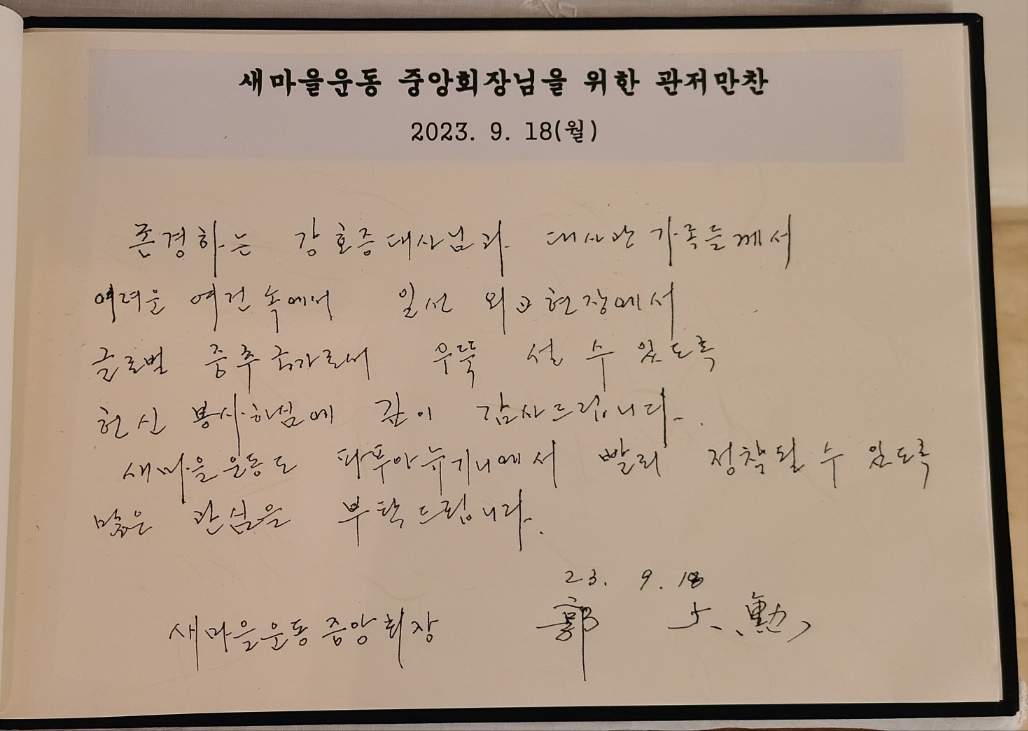 새마을운동 중앙회장님을 위한 관저만찬
2023. 9. 18(월)
존경하는 강호증대사님과 대사관 가족들께서
어려운 여건 속에서 일선 외교현장에서
글로벌 중추국가로서 우뚝 설 수 있도록
헌신 봉사하심에 깊이 감사드립니다.
새마을운동도 파푸아뉴기니에서 빨리 정착될 수 있도록
많은 관심을 부탁드립니다.
23. 9. 18
새마을운동중앙회장 郭大勳